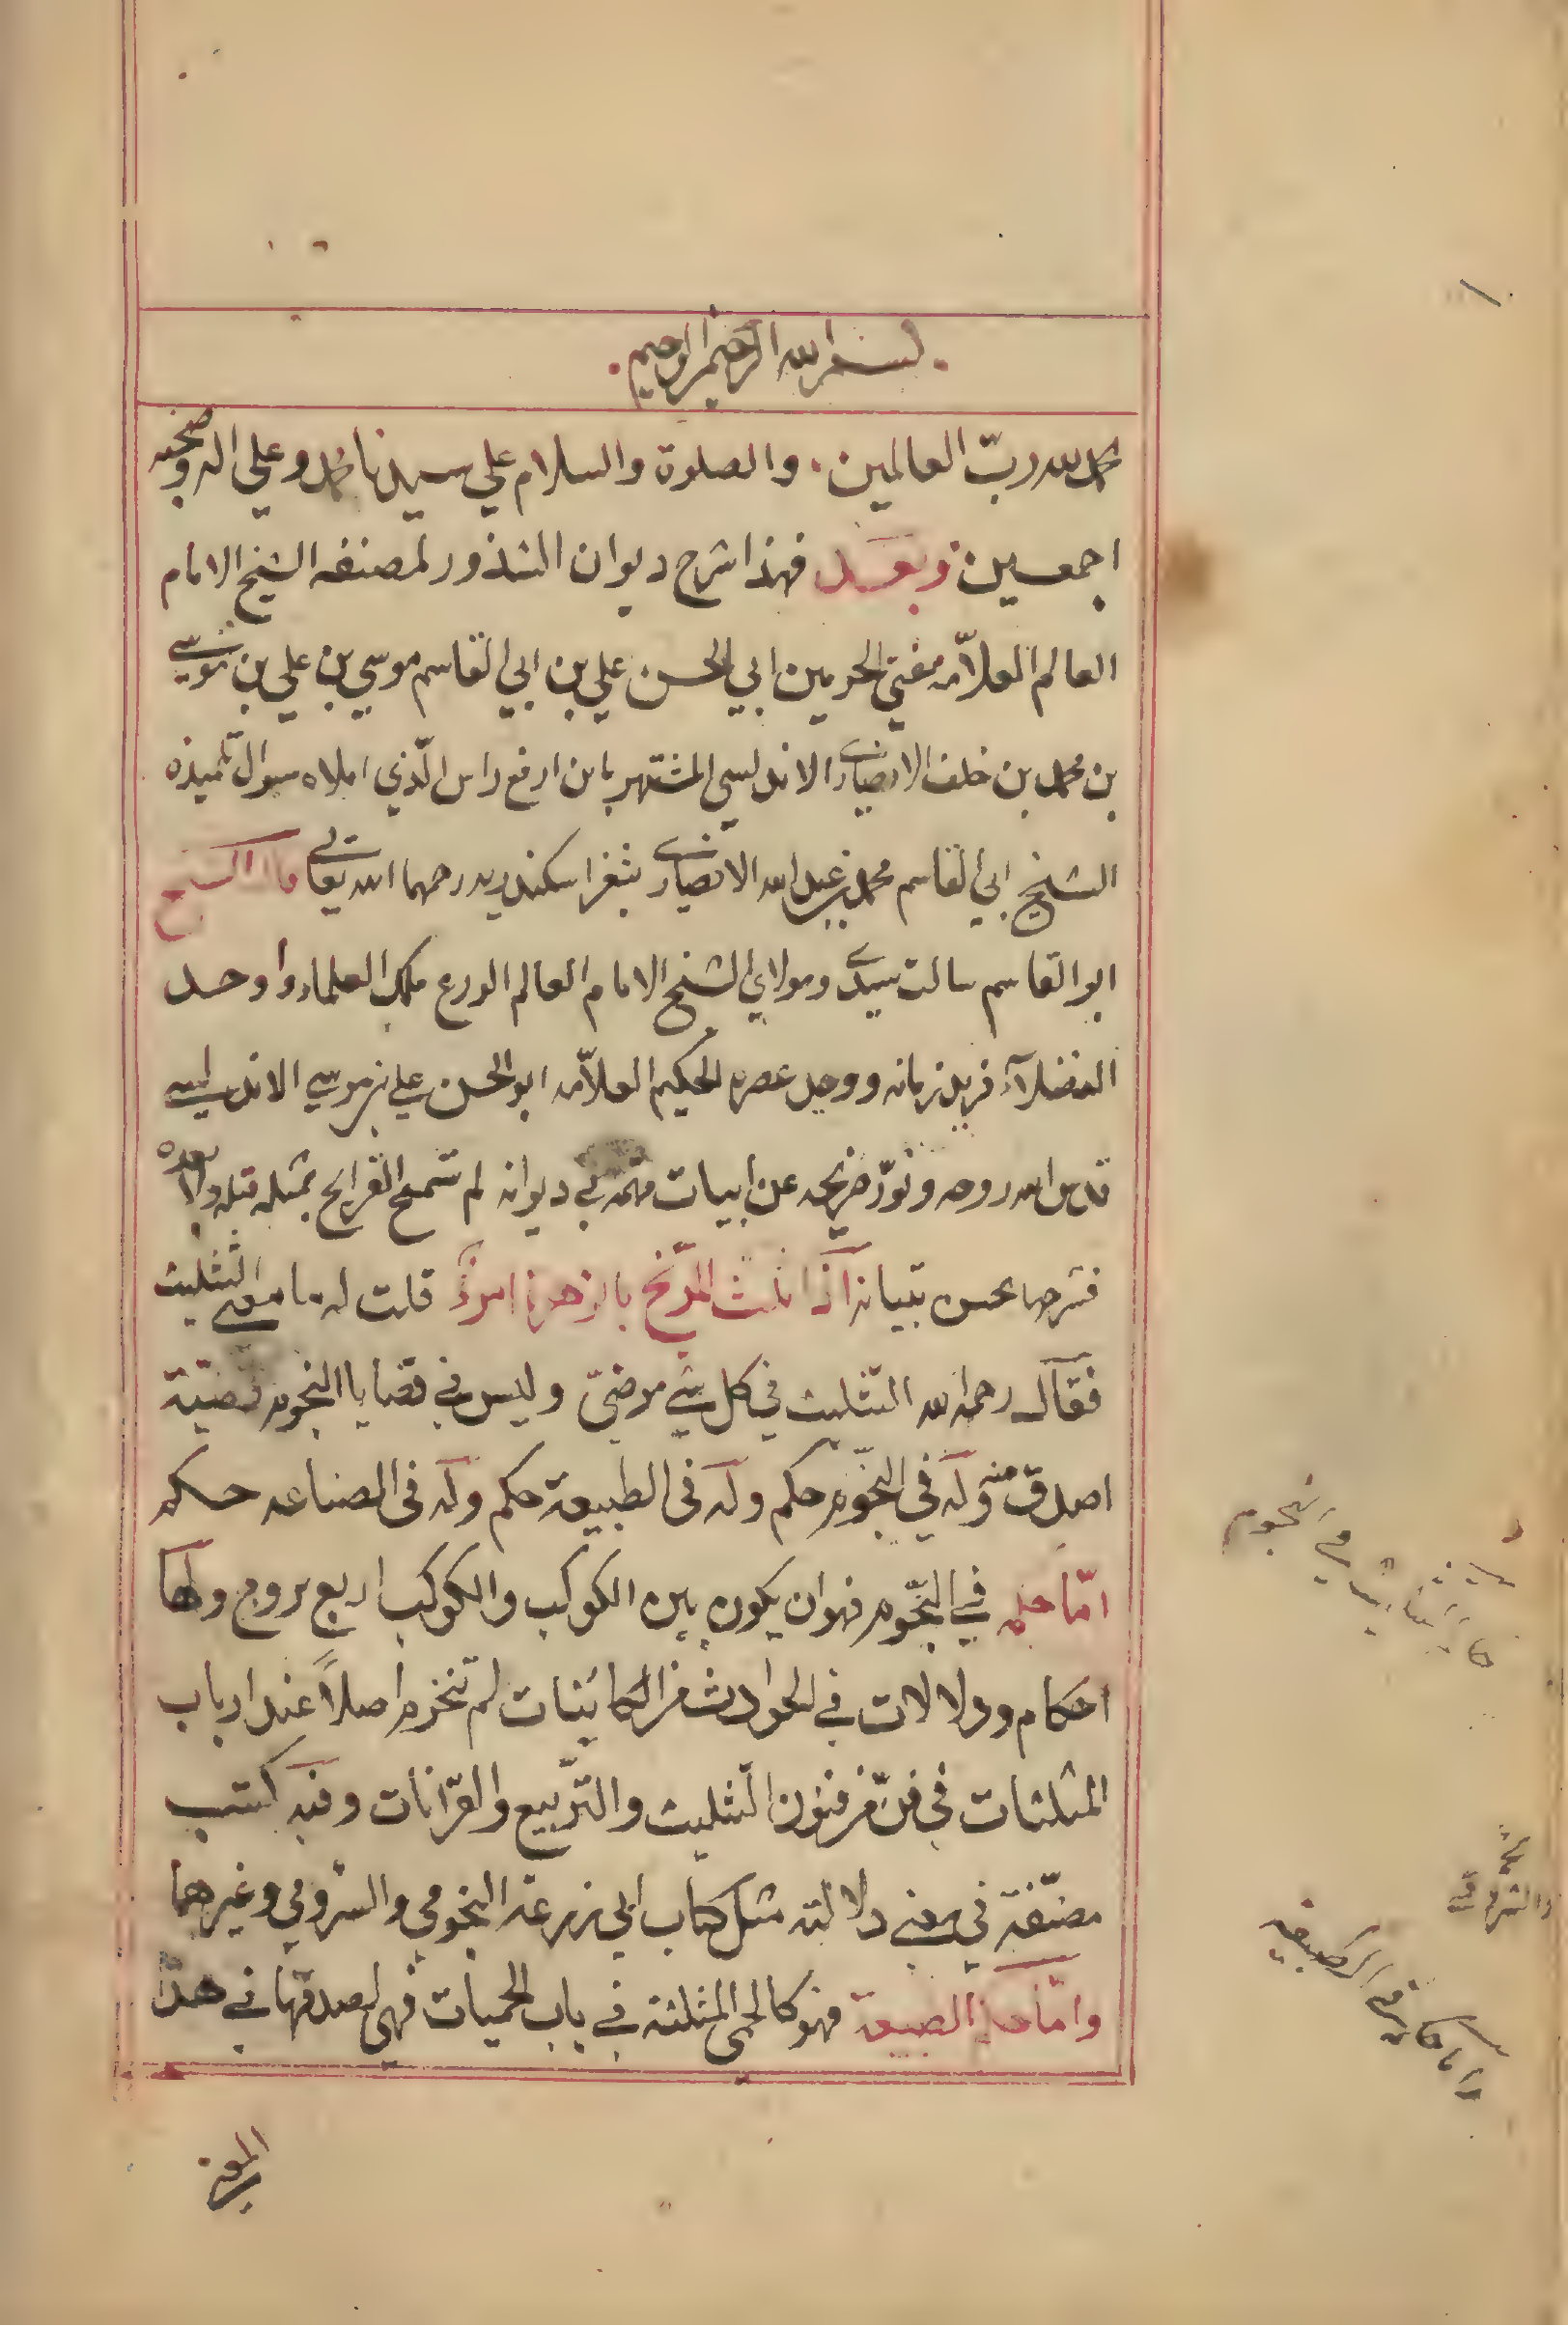 بسم الله الرحمن الرحيم
الحمد لله رب العالمين، والصلوة والسلام علي سيدنا محمد وعلي اله وصحبه
اجمعين وبعد فهذا شرح ديوان الشذور لمصنفه الشيخ الامام
العالم العلاّمه مفتي الحرمين ابي الحسن علي بن ابي القاسم موسي بن علي بن موسي
بن محمد بن خلف الانصاري الاندلسي المشتهر بابن ارفع راس الّذي املاه سوال تلميذه
الشيخ ابي القاسم محمد بن عبد الله الانصاري بثغر اسكندريه رحمهما الله تعالي قال الشيخ
ابو القاسم سالت سيدي ومولاي الشيخ الامام العالم الورع ملك العلماء واوحد
الفضلاء فريد زمانه ووحيد عصره الحكيم العلاّمه ابو الحسن علي بن موسي الاندلسي
قدس الله روحه ونوّر ضريحه عن ابيات مهمه في ديوانه لم تسمح القرايح بمثله قبله ولا بعده
فشرحها بحسن تبيانه اذا ثلث المرّيخ بالزهرة امرؤ قلت له ما معني التثليث
فقال رحمه الله التثليث في كل شي مرضيّ وليس في قضايا النجوم قضيّة
اصدق منه وله في النجوم حكم وله في الطبيعة حكم وله في الصناعه حكم
امّا حكمه في النجّوم فهو ان يكون بين الكوكب والكوكب اربع بروج ولها
احكام ودلالات في الحوادث من الكاينات لم تنخرم اصلاً عند ارباب
المثلثات في فنّ من فنون التثليث والترّبيع والقرانات وفيه كتب
مصنّفة في معني دلالته مثل كتاب ابي زرعة النجومي والشرومي وغيرهما
وامّا حكم الطبيعة فهو كالحمي المثلثة في باب الحميات فهي لصدقها في هذا
المعني
التثليث في النجوم
واما حكمه في الطبيعة